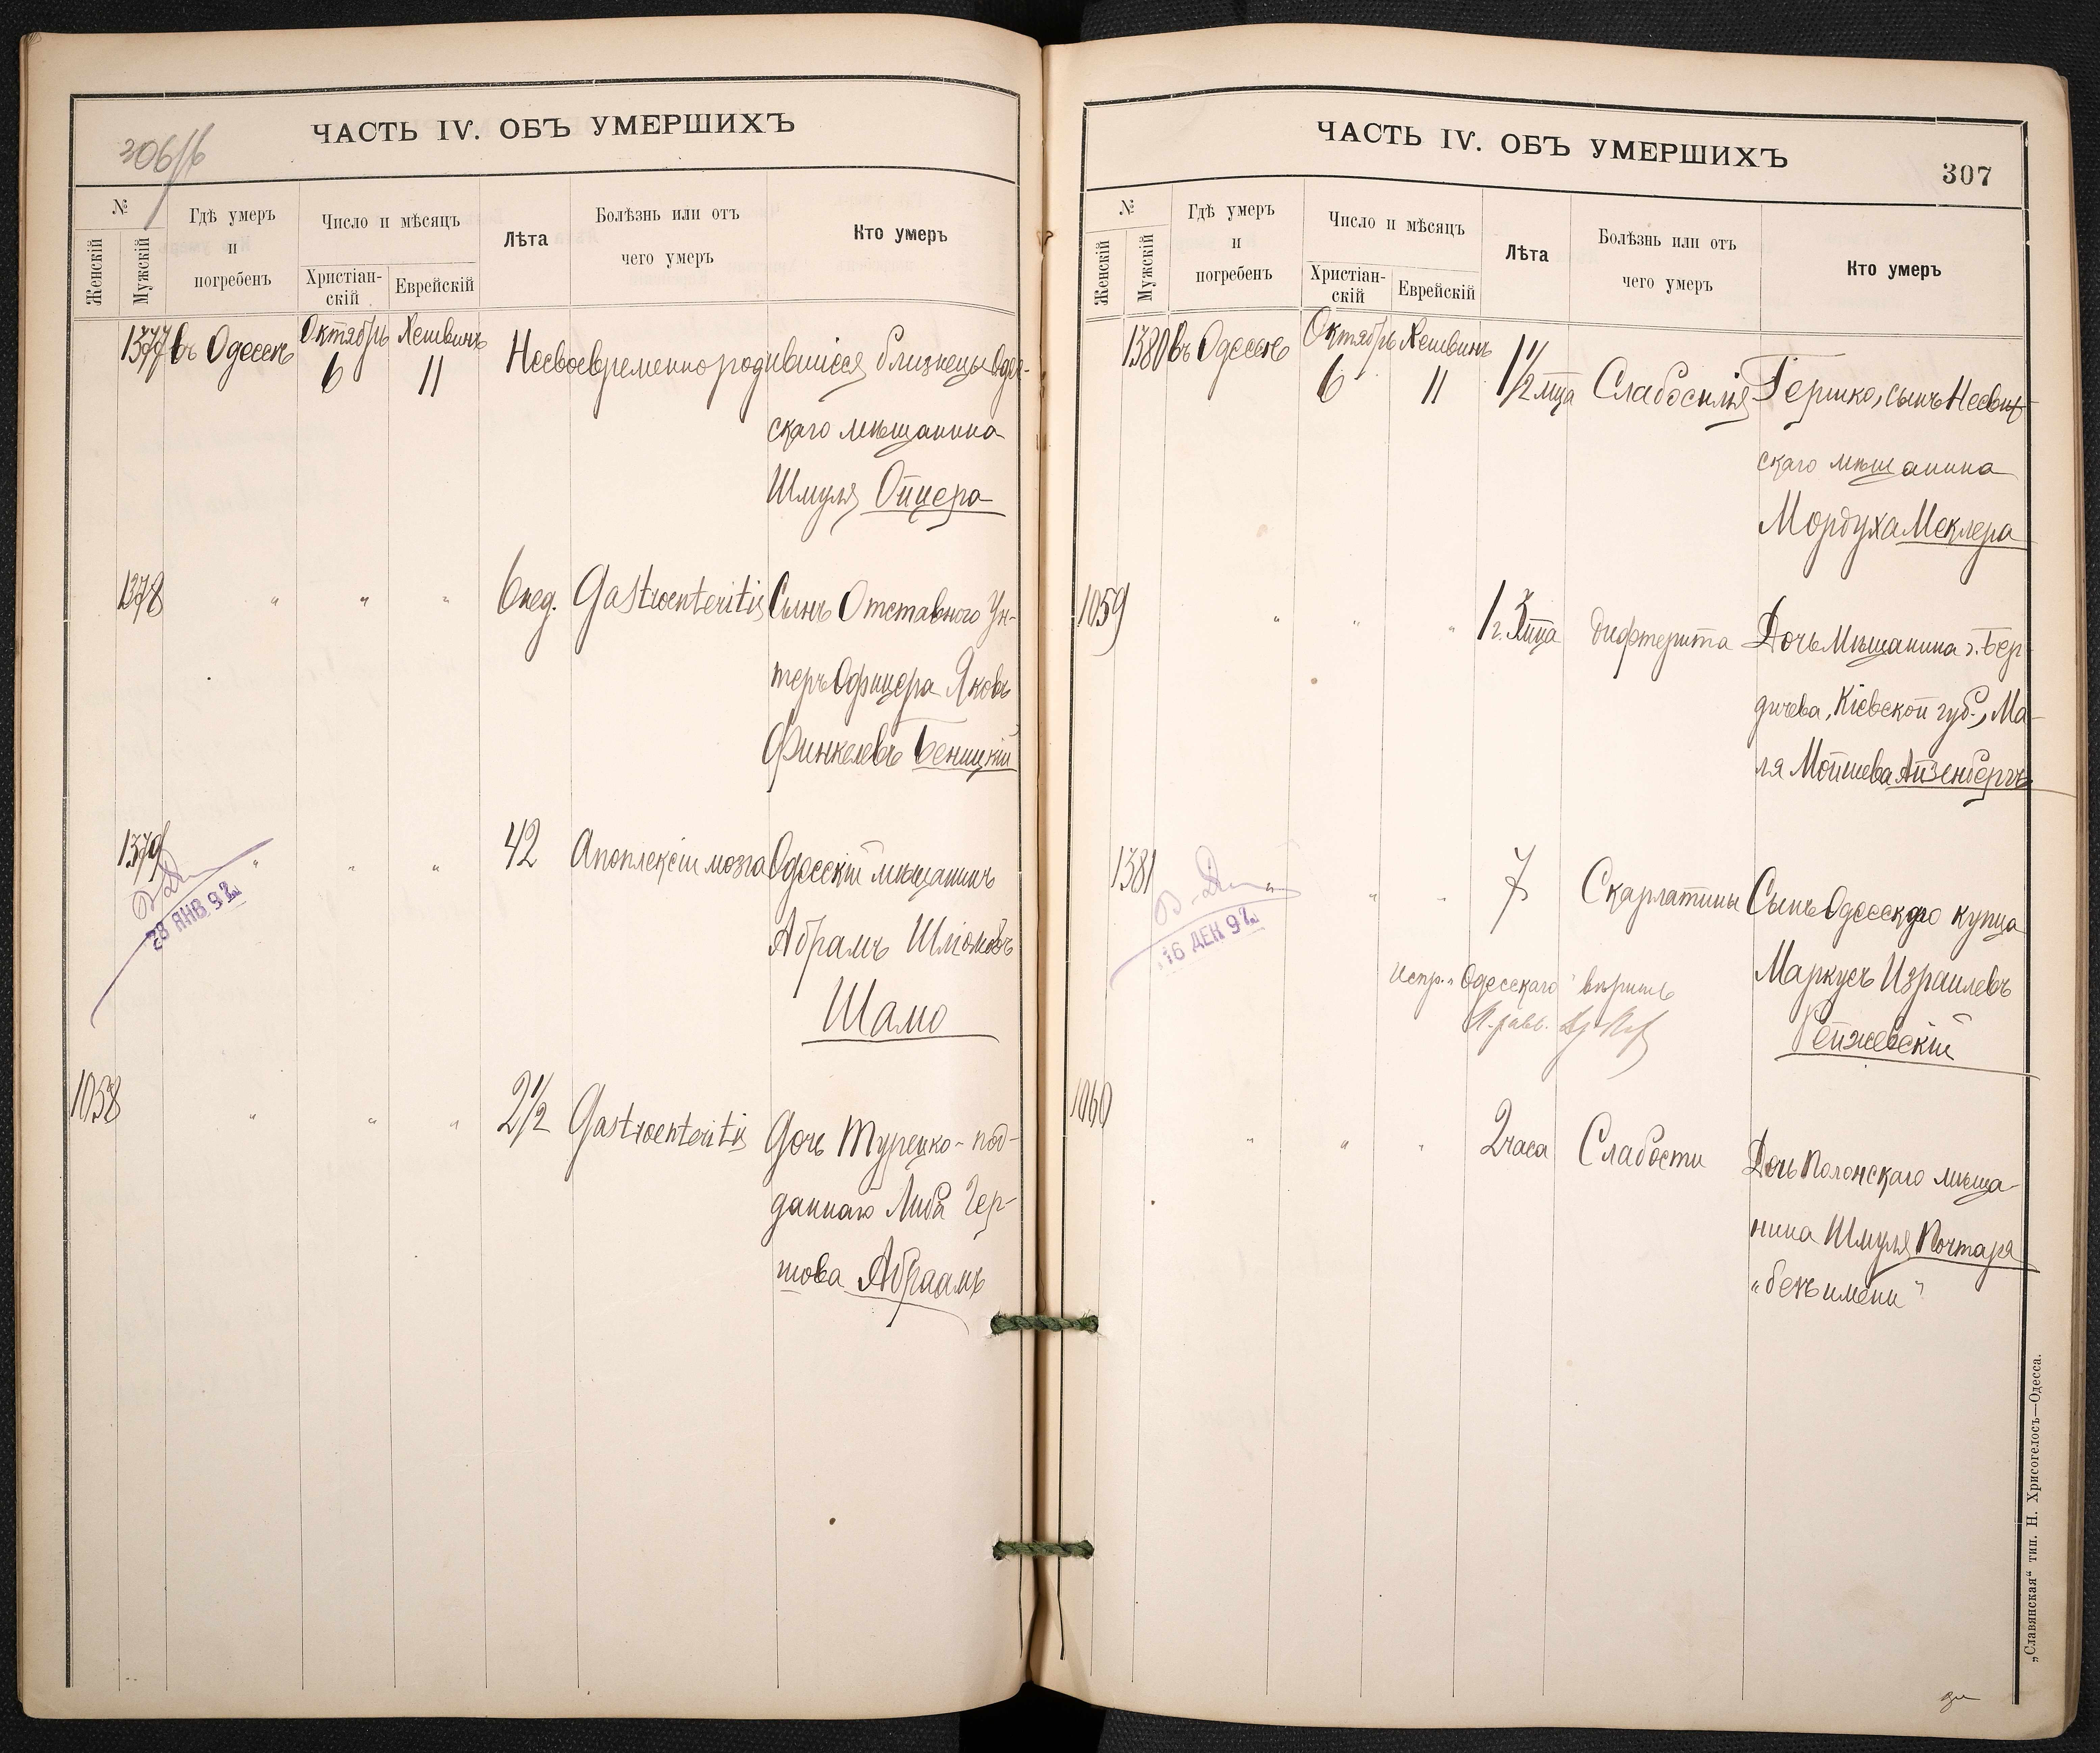 306/б
ЧАСТЬ IV. ОБЪ УМЕРШИХЪ
№
Женскій
Мужскій
Гдѣ умеръ
и
погребенъ
Число и мѣсяцъ
Христіан-
скій
Еврейскій
Лѣта
Болѣзнь или отъ
чего умеръ
Кто умеръ
1377 въ Одессѣ Октябрь 6 Хешвинъ 11 Несвоевременно родившіеся близнецы Одес-
скаго мѣщанина
Шмуля Ойцера
1378 " " " 6 нед. Gastroenteritis Сынъ Отставного Ун-
теръ Офицера Яковъ
Финкелевъ Беницкій
1379 " " " 42 Апоплексіи мозга Одесскій мѣщанинъ
Абрамъ Шліомовъ
Шамо
28 ЯНВ. 92
1058 " " " 2 1/2 Gastroenteritis Дочь Турецко-под-
даннаго Либа Гер-
шова Абраамъ
ЧАСТЬ IV. ОБЪ УМЕРШИХЪ
307
№
Женскій
Мужскій
Гдѣ умеръ
и
погребенъ
Число и мѣсяцъ
Христіан-
скій
Еврейскій
Лѣта
Болѣзнь или отъ
чего умеръ
Кто умеръ
1380 въ Одессѣ Октябрь 6 Хешвинъ 11 1 1/2 мца Слабосилія Гершко, сынъ Несвиж-
скаго мѣщанина
Мордуха Меклера
1059 " " " 1 г. 3 мца дифтерита Дочь Мѣщанина г. Бер-
дичева, Кіевской губ., Ма-
ля Мойшева Айзенбергъ
1381 " " " 7 Скарлатины Сынъ Одесскаго купца
Маркусъ Израилевъ
Рейжевскій
16 ДЕК 92
Испр. "Одесскаго" вѣрить
1060 " " " 2 часа Слабости Дочь Полонскаго мѣща-
нина Шмуля Почтаря
"безъ имени"
„Славянская“ тип. Н. Хрисогелосъ—Одесса.